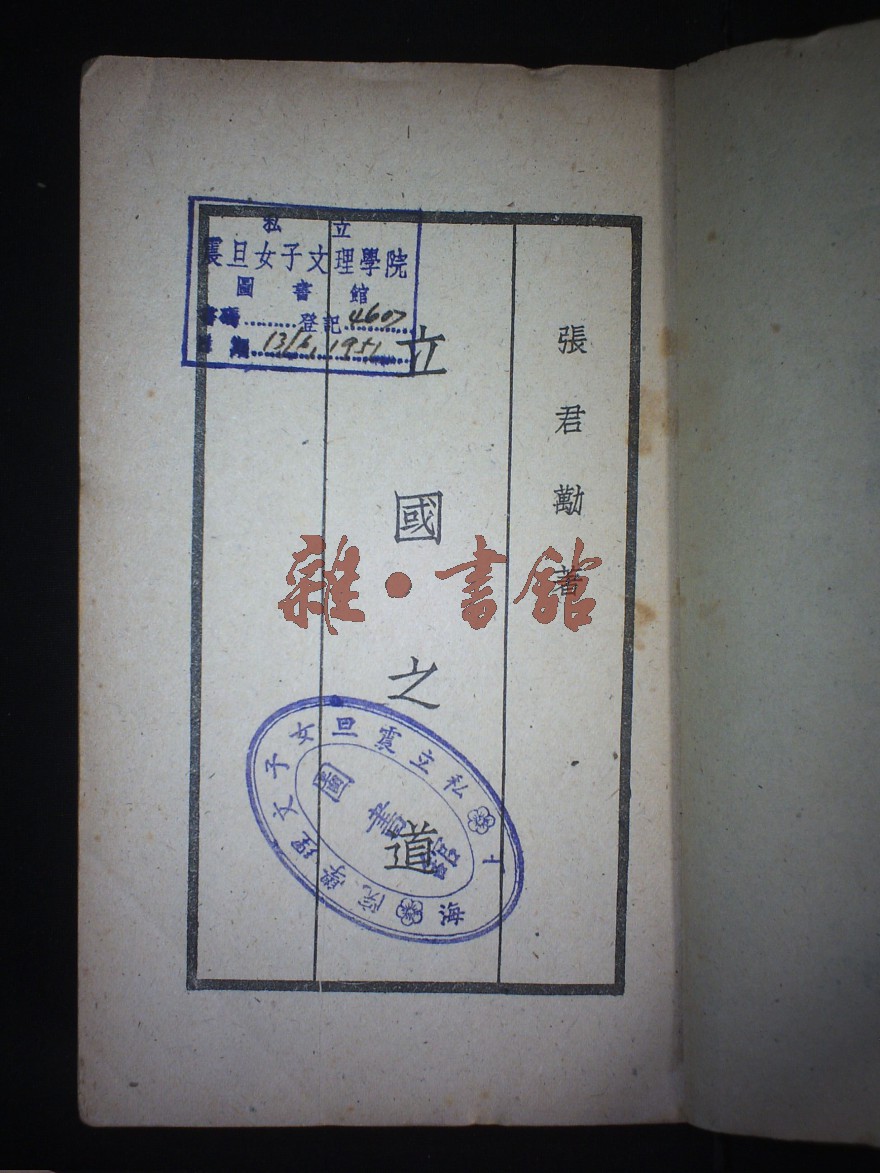 張君勱著
立國之道
私立
震旦女子文理學院
圖書館
書碼......登記 4607
日期 13/6, 1951
雜·書館
上海私立震旦女子文理學院
圖書館